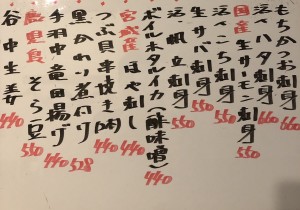 もちかつお刺身 660
活〆ハタ刺身 660
国産生サーモン刺身 550
活〆こち刺身 550
生サバ刺身 550
活帆立刺身 550
ボイルホタルイカ(酢味噌) 440
宮城産ほや刺し 440
つぶ貝串焼き(肉) 440
里かわり煮付け 528
手羽中竜田揚げ 440
鹿児島産そら豆 550
谷中生姜 440